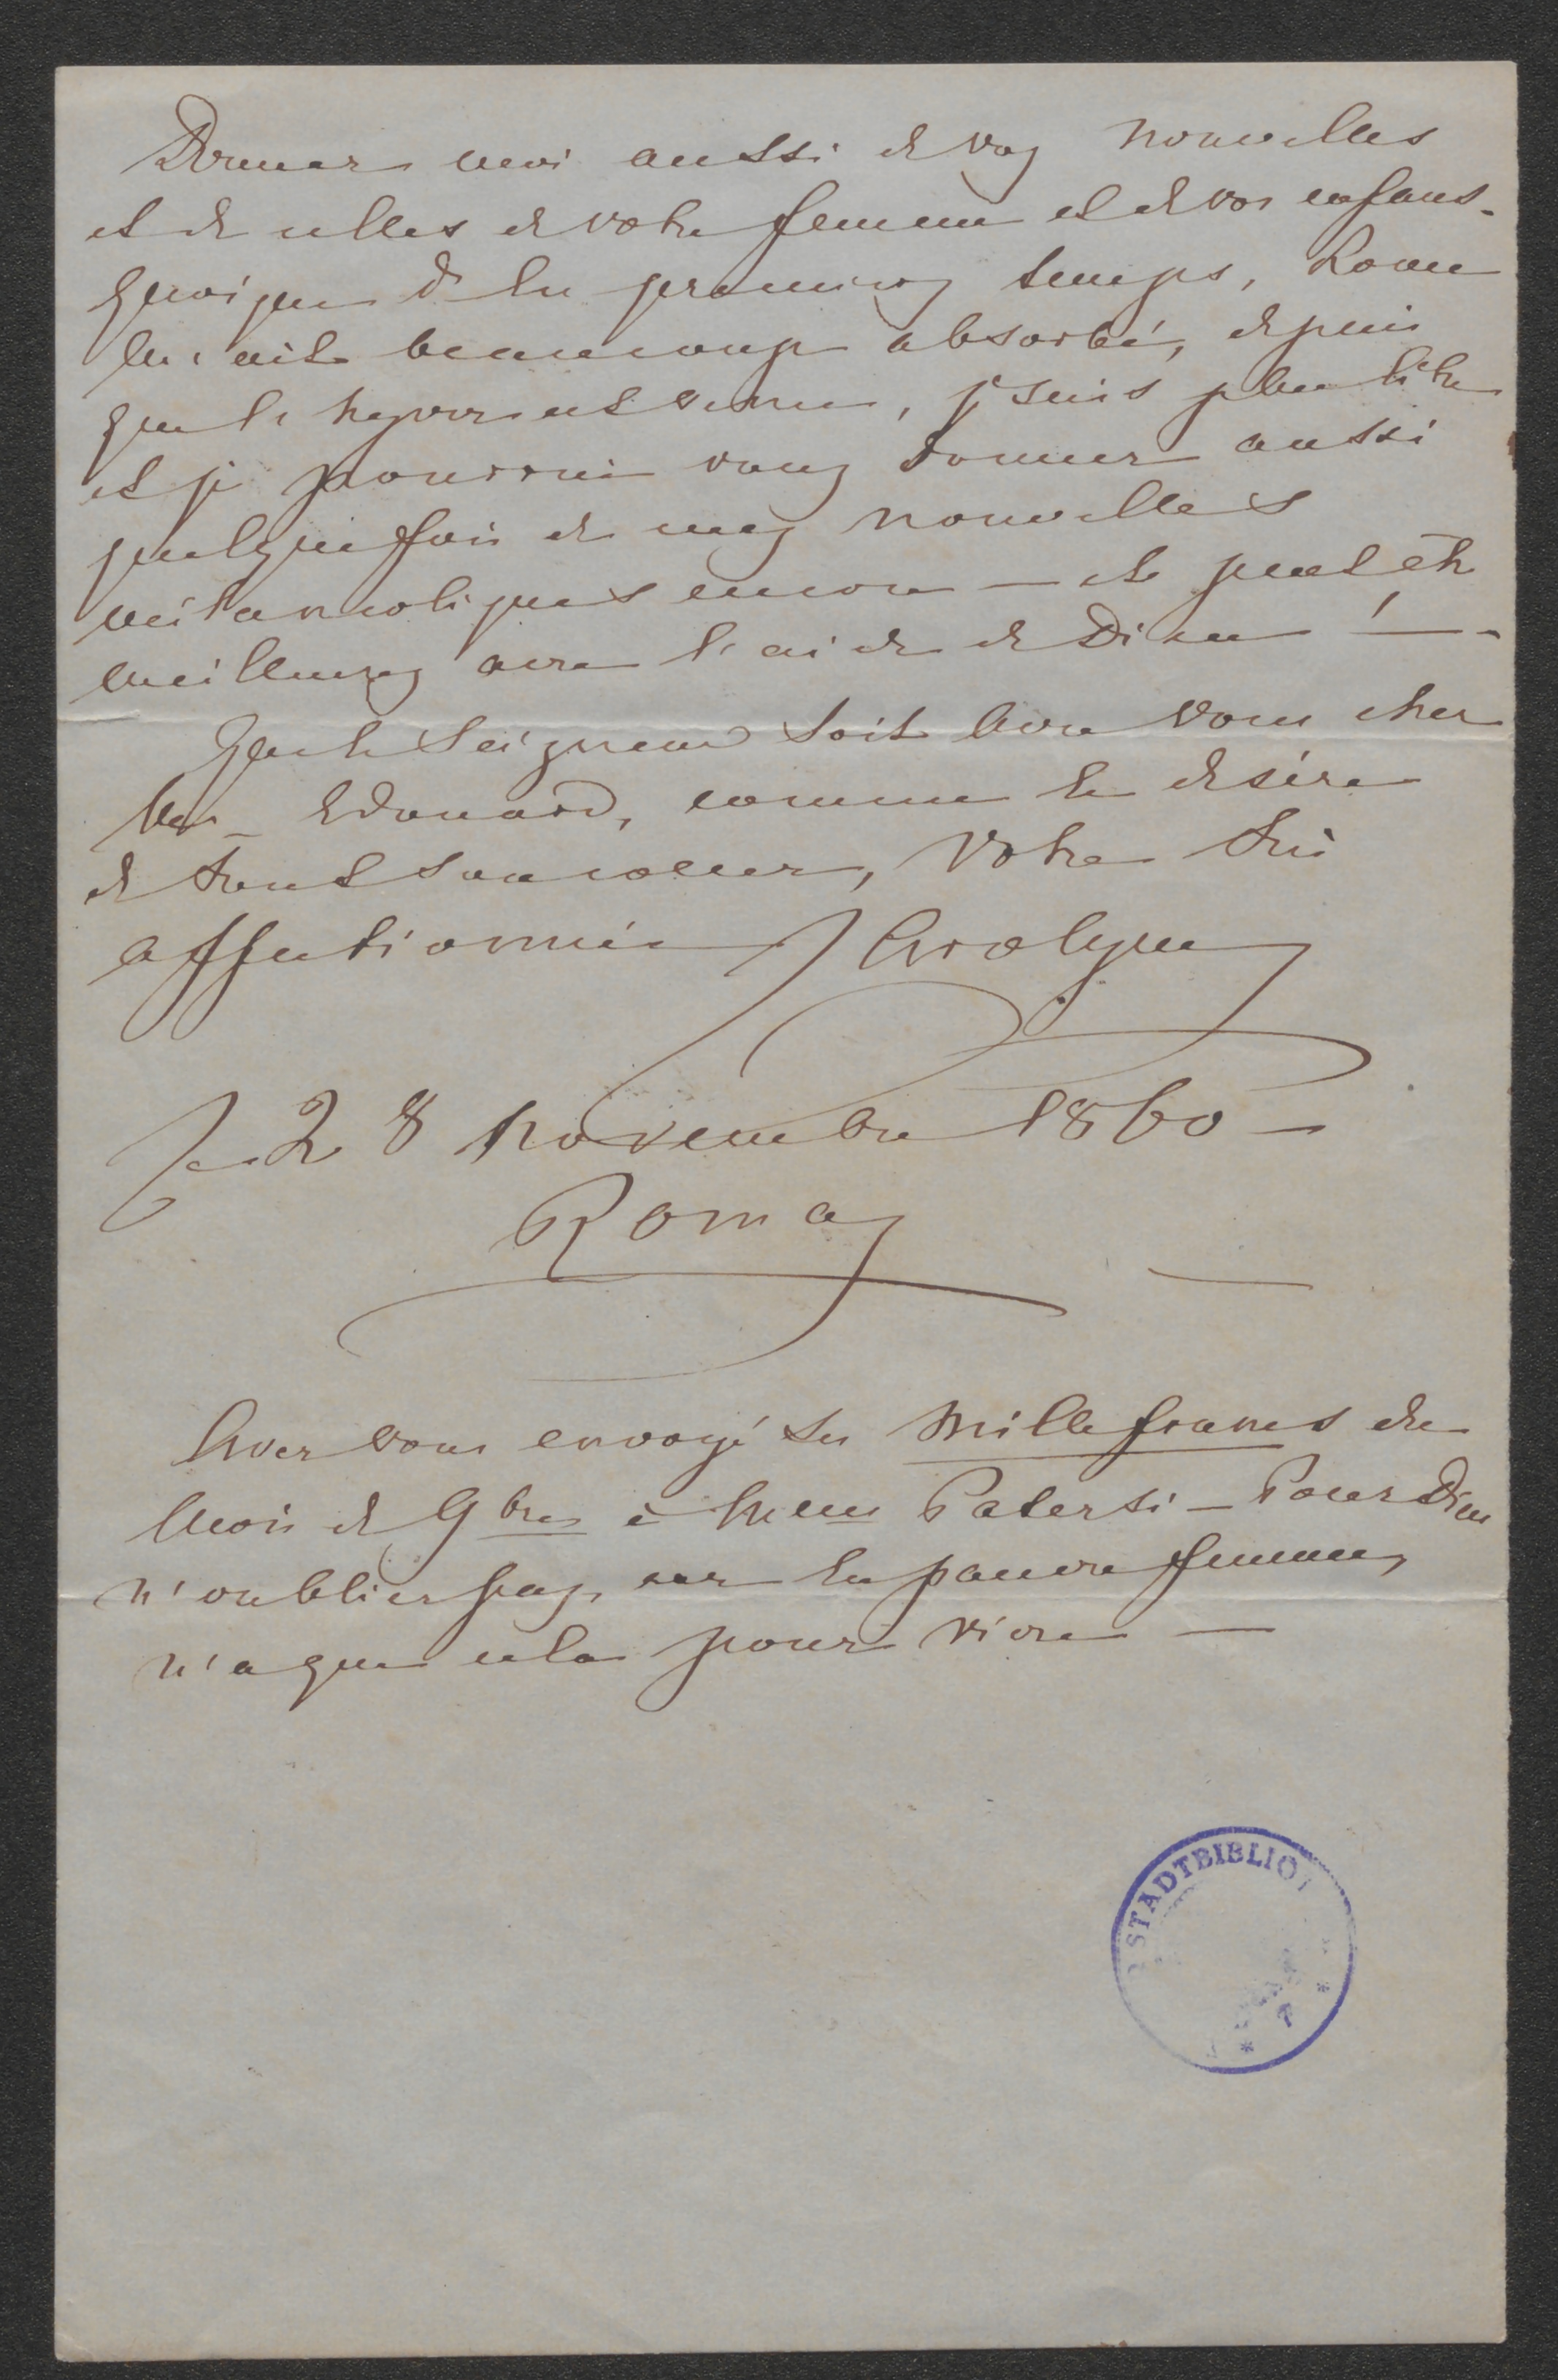 Donnez moi aussi de vos nouvelles
et de celles de votre femme et de vos enfans.
Quoique de les premiers temps, Rome
m'ait beaucoup absorbé, depuis
que l'hyver est venu, je suis plus libre
et je pourrai vous donner aussi
quelquefois de mes nouvelles
mélancoliques encore — et peut être
meilleures avec l'aide de Dieu ! —
Que le Seigneur soit avec vous cher
Mr Edouard, comme le désire
de tout son cœur, Votre très
affectionnée Carolyne
28 Novembre 1860 —
Roma
Avez vous envoyé les Mille francs du
mois de 9bre à Mme Patersi — Pour Dieu
n'oubliez pas, car la pauvre femme
n'a que cela pour vivre —
STADTBIBLIO